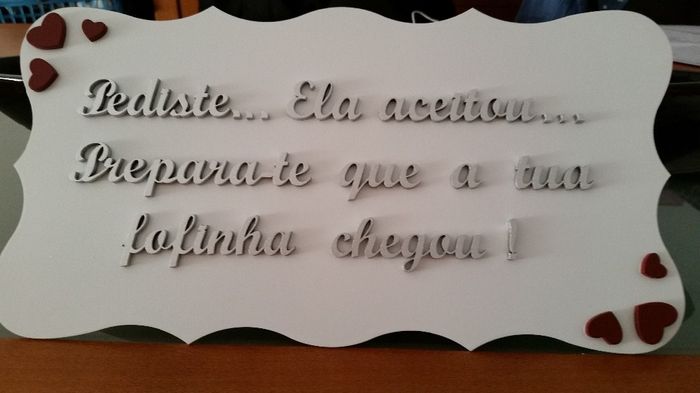 Pediste... Ela aceitou...
Prepara-te que a tua
fofinha chegou!